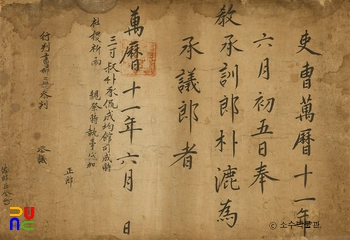 吏曹萬曆十一年
六月初五日奉
教承訓郎朴漉爲
承議郎者
萬曆十一年六月 日
叔朴承侃成均館司成時
社稷祈雨 親祭時執事 加
行判書 參判 參議 正郎
© 소수박물관